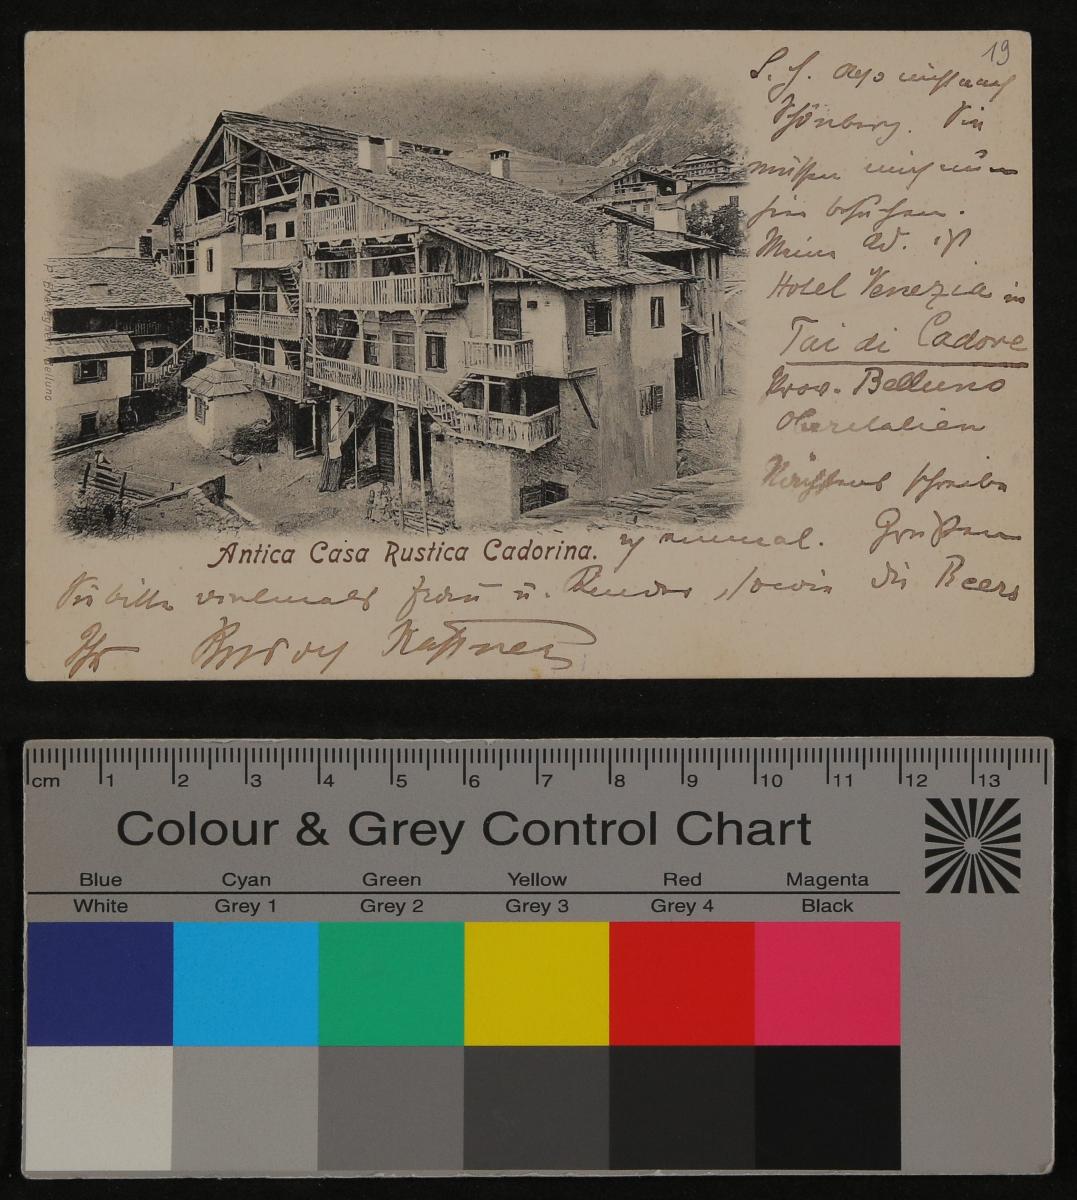 19
L. H. also nicht nach
Schönberg. Sie
müssen mich nun
hier besuchen.
Meine Ad. ist
Hotel Venezia in
Tai di Cadore
Prov. Belluno
Oberitalien
Nächstens schreibe
ich einmal. Grüßen
Sie bitte vielmals Frau u. Kinder, sowie die Beers
Ihr Rudolf Kassner
Antica Casa Rustica Cadorina.
Belluno
cm 1 2 3 4 5 6 7 8 9 10 11 12 13
Colour & Grey Control Chart
Blue Cyan Green Yellow Red Magenta
White Grey 1 Grey 2 Grey 3 Grey 4 Black